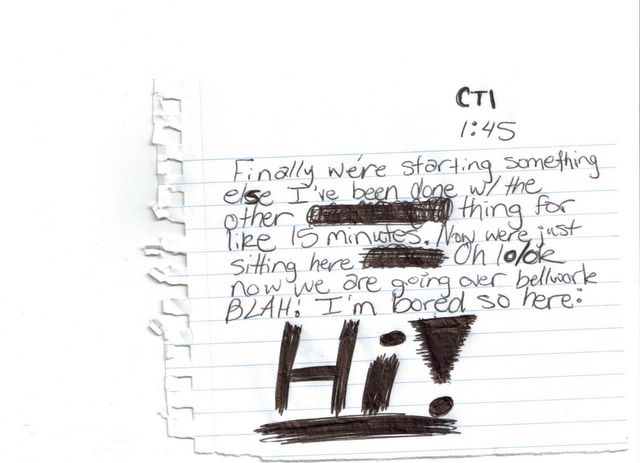 CTI
1:45
Finally we're starting something
else I've been done w/ the
other thing for
like 15 minutes. Now were just
sitting here Oh look
now we are going over bellwork
BLAH! I'm bored so here:
Hi!